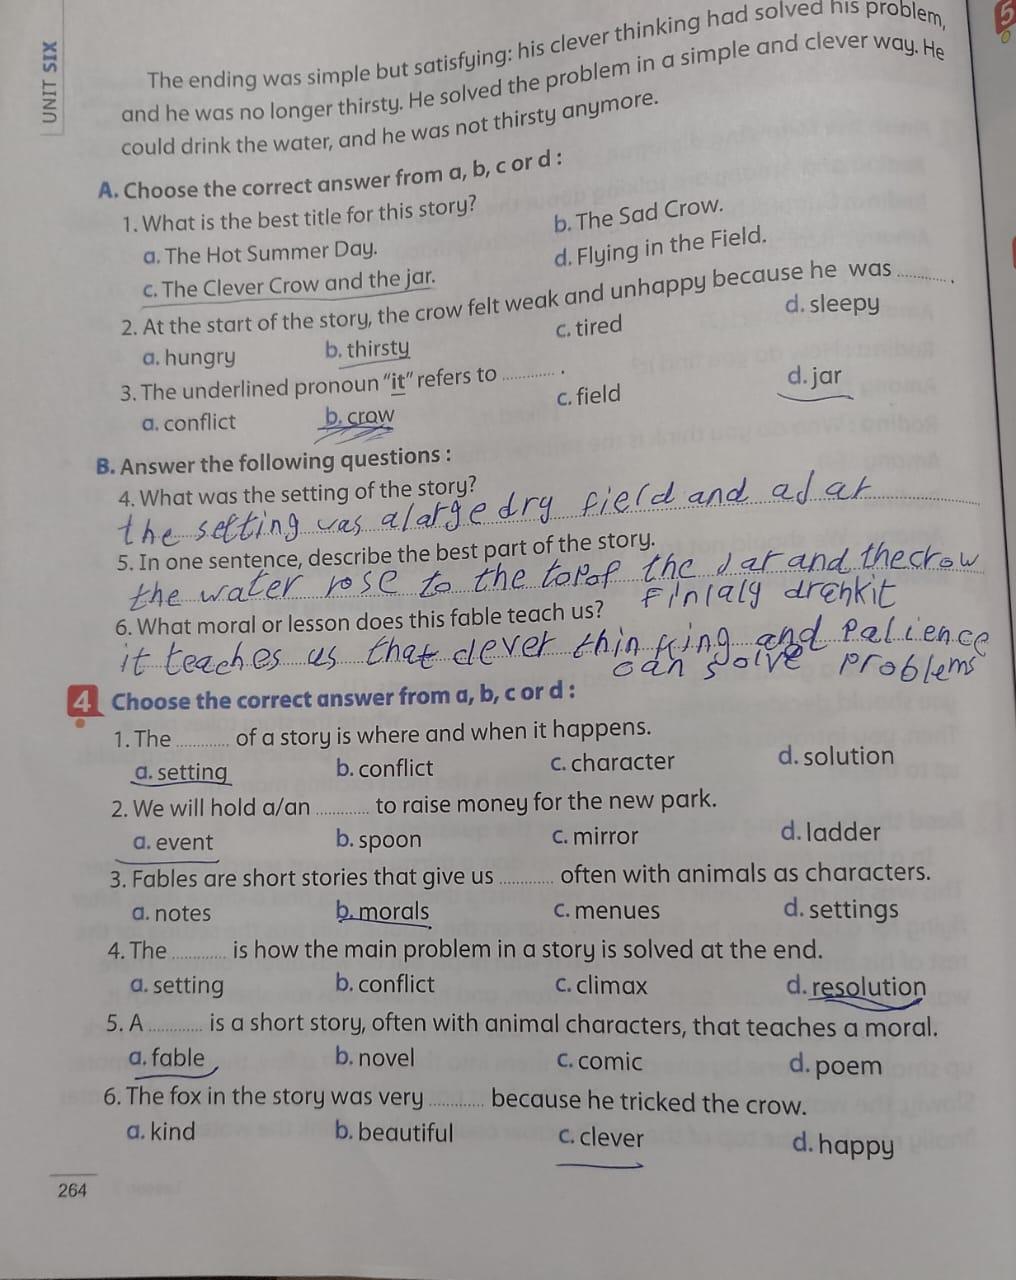 UNIT SIX
5
The ending was simple but satisfying: his clever thinking had solved his problem,
and he was no longer thirsty. He solved the problem in a simple and clever way. He
could drink the water, and he was not thirsty anymore.
A. Choose the correct answer from a, b, c or d :
1. What is the best title for this story?
a. The Hot Summer Day. b. The Sad Crow.
c. The Clever Crow and the jar. d. Flying in the Field.
2. At the start of the story, the crow felt weak and unhappy because he was ............ .
a. hungry b. thirsty c. tired d. sleepy
3. The underlined pronoun “it” refers to ............ .
a. conflict b. crow c. field d. jar
B. Answer the following questions :
4. What was the setting of the story?
the setting was a large dry field and a jar
5. In one sentence, describe the best part of the story.
the water rose to the top of the jar and the crow
Finlaly drenkit
6. What moral or lesson does this fable teach us?
it teaches us that clever thinking and palience
can solve problems
4 Choose the correct answer from a, b, c or d :
1. The ............ of a story is where and when it happens.
a. setting b. conflict c. character d. solution
2. We will hold a/an ............ to raise money for the new park.
a. event b. spoon c. mirror d. ladder
3. Fables are short stories that give us ............ often with animals as characters.
a. notes b. morals c. menues d. settings
4. The ............ is how the main problem in a story is solved at the end.
a. setting b. conflict c. climax d. resolution
5. A ............ is a short story, often with animal characters, that teaches a moral.
a. fable b. novel c. comic d. poem
6. The fox in the story was very ............ because he tricked the crow.
a. kind b. beautiful c. clever d. happy
264